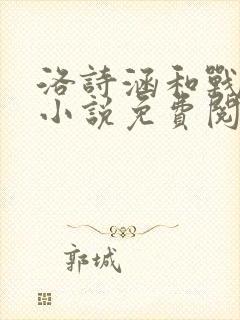 洛詩涵和戰
小說免費閱
郭城